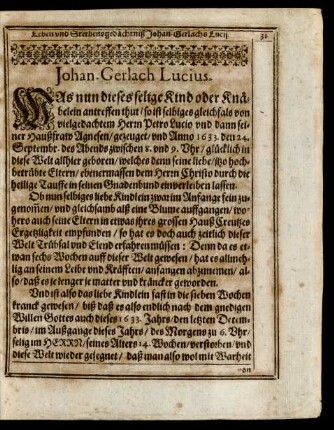 Leben vnd Sterbensgedächtniß Johan-Gerlachs Lucij. 31
Johan-Gerlach Lucius.
WAs nun dieses selige Kind oder Knä-
belein antreffen thut / so ist selbiges gleichfals von
vielgedachtem Herm Petro Lucio vnd dann sei-
ner Haußfraw Agnesen / gezeuget / vnd Anno 1633. den 24.
Septembr. des Abends zwischen 8. vnd 9. Vhr / glücklich in
diese Welt allhier geboren / welches denn seine liebe / itzo hoch-
betrübte Eltern / ebenermassen dem Herm Christo durch die
heilige Tauffe in seinen Gnadenbund einverleiben lassen.
Ob nun selbiges liebe Kindlein zwar im Anfange fein zu-
genom̃en / vnd gleichsam als eine Blume auffgangen / wo-
hero auch seine Eltern in etwas jhres grossen Hauß Creutzes
Ergetzligkeit empfunden / so hat es doch auch zeitlich dieser
Welt Trübsal vnd Elend erfahren müssen: Denn da es et-
wan sechs Wochen auff dieser Welt gewesen / hat es allmeh-
lig an seinem Leibe vnd Kräfften / anfangen abzunemen / al-
so / daß es je lenger je matter vnd kräncker geworden.
Vnd ist also das liebe Kindlein fast in die sieben Wochen
kranck gewesen / biß daß es also endlich nach dem gnedigen
Willen Gottes auch dieses 1633. Jahrs / den letzten Decem-
bris / im Außgange dieses Jahrs / des Morgens zu 6. Vhr /
selig im HERRN / seines Alters 14. Wochen / verstorben / vnd
diese Welt wieder gesegnet / daß man also wol mit Warheit
von